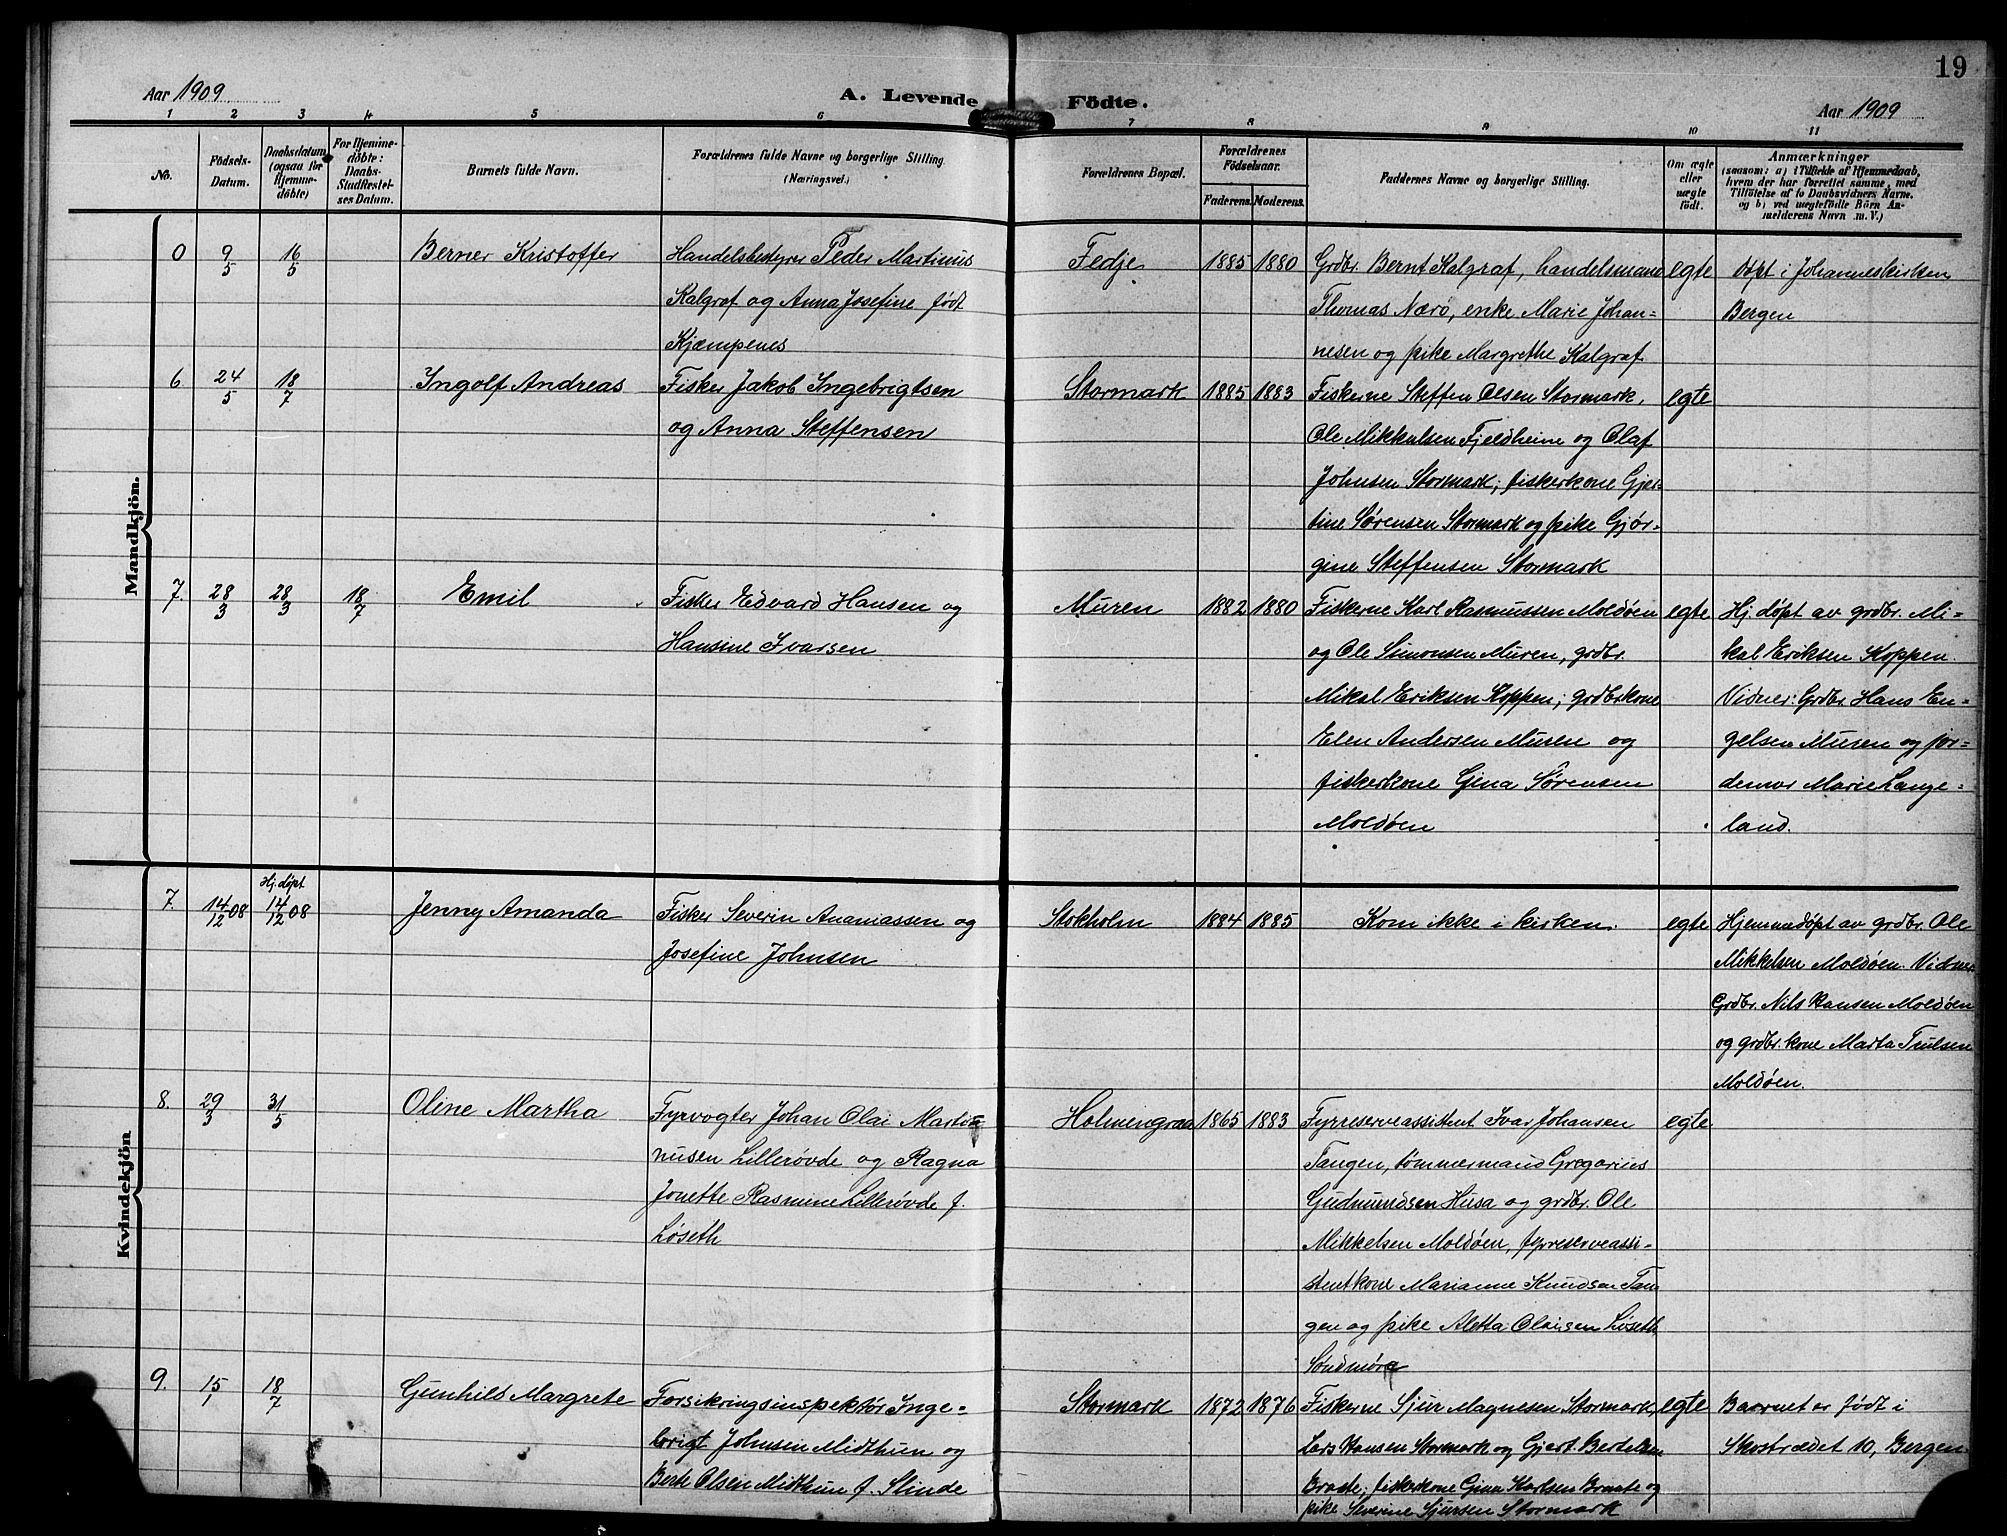 19
Aar 1909
A. Levende Födte.
Aar 1909
1 2 3 4 5 6 7 8 9 10 11
No.
Födsels-
Datum.
Daabsdatum
(ogsaa for
Hjemme-
döbte)
For Hjemme-
döbte:
Daabs-
Stadfæstel-
ses Datum.
Barnets fulde Navn.
Forældrenes fulde Navne og borgerlige Stilling.
(Næringsvei.)
Forældrenes Bopæl.
Forældrenes
Födselsaar.
Faderens. Moderens.
Faddernes Navne og borgerlige Stilling.
Om ægte
eller
uægte
födt.
Anmærkninger
(saasom: a) i Tilfælde af Hjemmedaab,
hvem der har forrettet samme, med
Tilföielse af to Daabsvidners Navne,
og b) ved uægtefödte Börn An-
melderens Navn m. V.)
Mandkjön.
0 9/5 16/5 Berner Kristoffer
Handelsbestyrer Peder Martinus
Kalgraf og Anna Josefine født
Kjæmpenes
Fedje 1885 1880
Grdbr. Bernt Kalgraf, handelsmann
Thomas Nærø, enke Marie Johan-
nesen og pike Margrethe Kalgraf
egte
Døpt i Johanneskirken
Bergen
6. 24/5 18/7 Ingolf Andreas
Fisker Jakob Ingebrigtsen
og Anna Steffensen
Stormark 1885 1883
Fiskerne Steffen Olsen Stormark,
Ole Mikkalsen Fjeldheim og Olaf
Johnsen Stormark; fiskerkone Gjer-
tine Sørensen Stormark og pike Gjør-
gine Steffensen Stormark
egte
7. 28/3 28/3 18/7 Emil
Fisker Edvard Hansen og
Hansine Ivarsen
Muren 1882 1880
Fiskerne Karl Rasmussen Moldøen
og Ole Simonsen Muren, grdbr.
Mikal Eriksen Koppen; grdbrkone
Elen Andersen Muren og
fiskerkone Gina Sørensen
Moldøen
egte
Hj. døpt av grdbr. Mi-
kal Eriksen Koppen.
Vidner: Grdbr. Hans En-
gelsen Muren og jor-
demor Marie Lange-
land.
Kvindekjön
7. 14/12 08 Hj. døpt 14/12 08 Jenny Amanda
Fisker Severin Ananiassen og
Josefine Johnsen
Stokholm 1884 1885
Kom ikke i kirken.
egte
Hjemmedøpt av grdbr. Ole
Mikkelsen Moldøen. Vidner
Grdbr. Nils Hansen Moldøen
og grdbr. kone Marta Trulsen
Moldøen.
8. 29/3 31/5 Oline Martha
Fyrvogter Johan Olai Martin
nusen Lillerøvde og Ragna
Jonette Rasmine Lillerøvde f.
Løseth
Holmengraa 1865 1883
Fyrreserveassistent Ivar Johansen
Tangen, tømmermand Gregorius
Gudmundsen Husa og grdbr. Ole
Mikkelsen Moldøen, fyrreserveassi-
stentkone Marianne Knudsen Tan-
gen og pike Aletta Olaisen Løseth
Søndmøre
egte
9. 15/1 18/7 Gunhild Margrete
Forsikringsinspektør Inge-
brigt Johnsen Midthun og
Berte Olsen Midthun f. Slinde
Stormark 1872 1876
Fiskerne Sjur Magnesen Stormark,
Lars Hansen Stormark og Gjert Bertelsen
Braate; fiskerkone Gina Karlsen Braate og
pike Severine Sjursen Stormark
egte
Barnet er født i
Skostrædet 10, Bergen